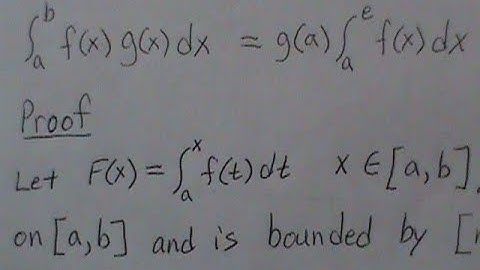 ∫_a^b f(x) g(x) dx = g(a) ∫_a^e f(x) dx
Proof
Let F(x) = ∫_a^x f(t) dt x ∈ [a, b]
on [a, b] and is bounded by [